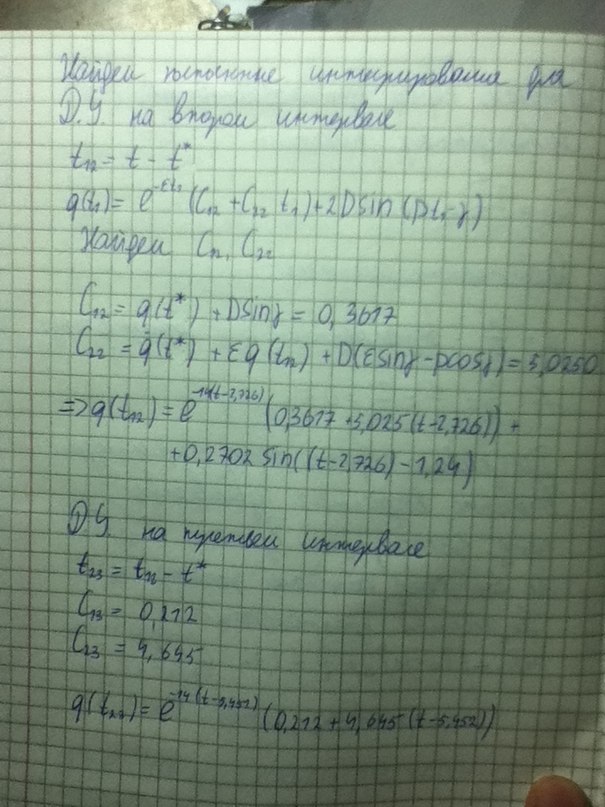 Найдем постоянные интегрирования для
Д.У. на втором интервале
t₁₂ = t - t*
q(t₁) = e^(-εt₁) (C₁₂ + C₂₂ t₁) + 2D sin (pt₁ - γ)
Найдем C₁₂, C₂₂
C₁₂ = q(t*) + D sinγ = 0,3617
C₂₂ = q̇(t*) + εq(t₁₂) + D(εsinγ - pcosγ) = 5,0250
=> q(t₁₂) = e^(-14(t-2,726)) (0,3617 + 5,025(t-2,726)) +
+ 0,2702 sin((t-2,726) - 1,24)
Д.У. на третьем интервале
t₂₃ = t₁₂ - t*
C₁₃ = 0,212
C₂₃ = 4,645
q(t₂₃) = e^(-14(t-5,452)) (0,212 + 4,645 (t-5,452))